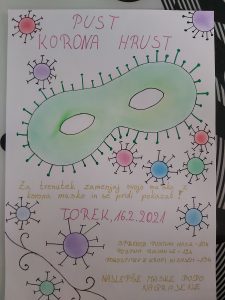 PUST
KORONA HRUST
Za trenutek zamenjaj svojo masko z
korona masko in se pridi pokazat!
TOREK 16.2.2021
NAJLEPŠE MASKE BODO
NAGRAJENE